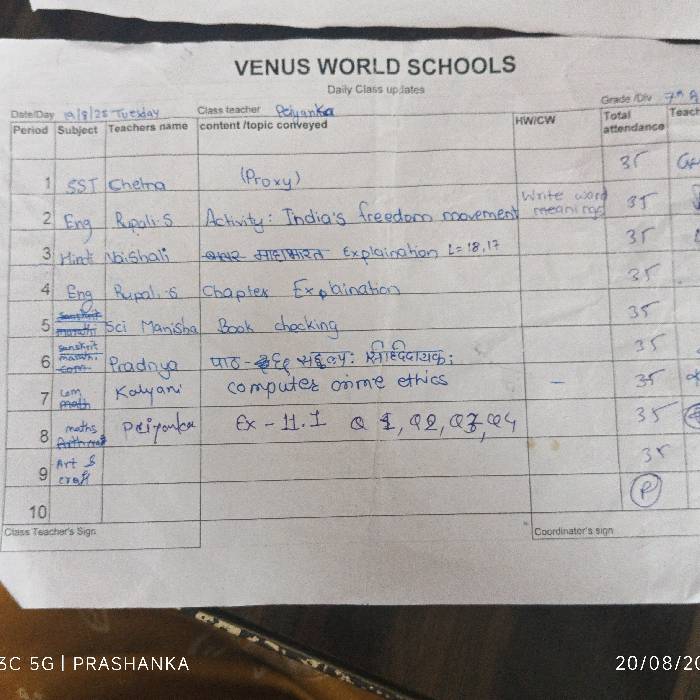 VENUS WORLD SCHOOLS
Daily Class updates
Date/Day 19/8/25 Tuesday Class teacher Priyanka Grade /Div 7th A
Period Subject Teachers name content /topic conveyed HW/CW Total attendance Teach
1 SST Chetna (Proxy) 35
2 Eng Rupali.S Activity: India's freedom movement Write word meanings 35
3 Hindi Vaishali माहाभारत Explaination L=18,17 35
4 Eng Rupali.S Chapter Explaination 35
5 Sci Manisha Book checking 35
6 sanskrit Pradnya पाठ- 35
7 com Kalyani computer crime ethics – 35
8 maths Priyanka Ex - 11.1 Q 1, Q2, Q3, Q4 35
9 Art & craft 35
10 P
Class Teacher's Sign Coordinator's sign
3C 5G | PRASHANKA 20/08/20